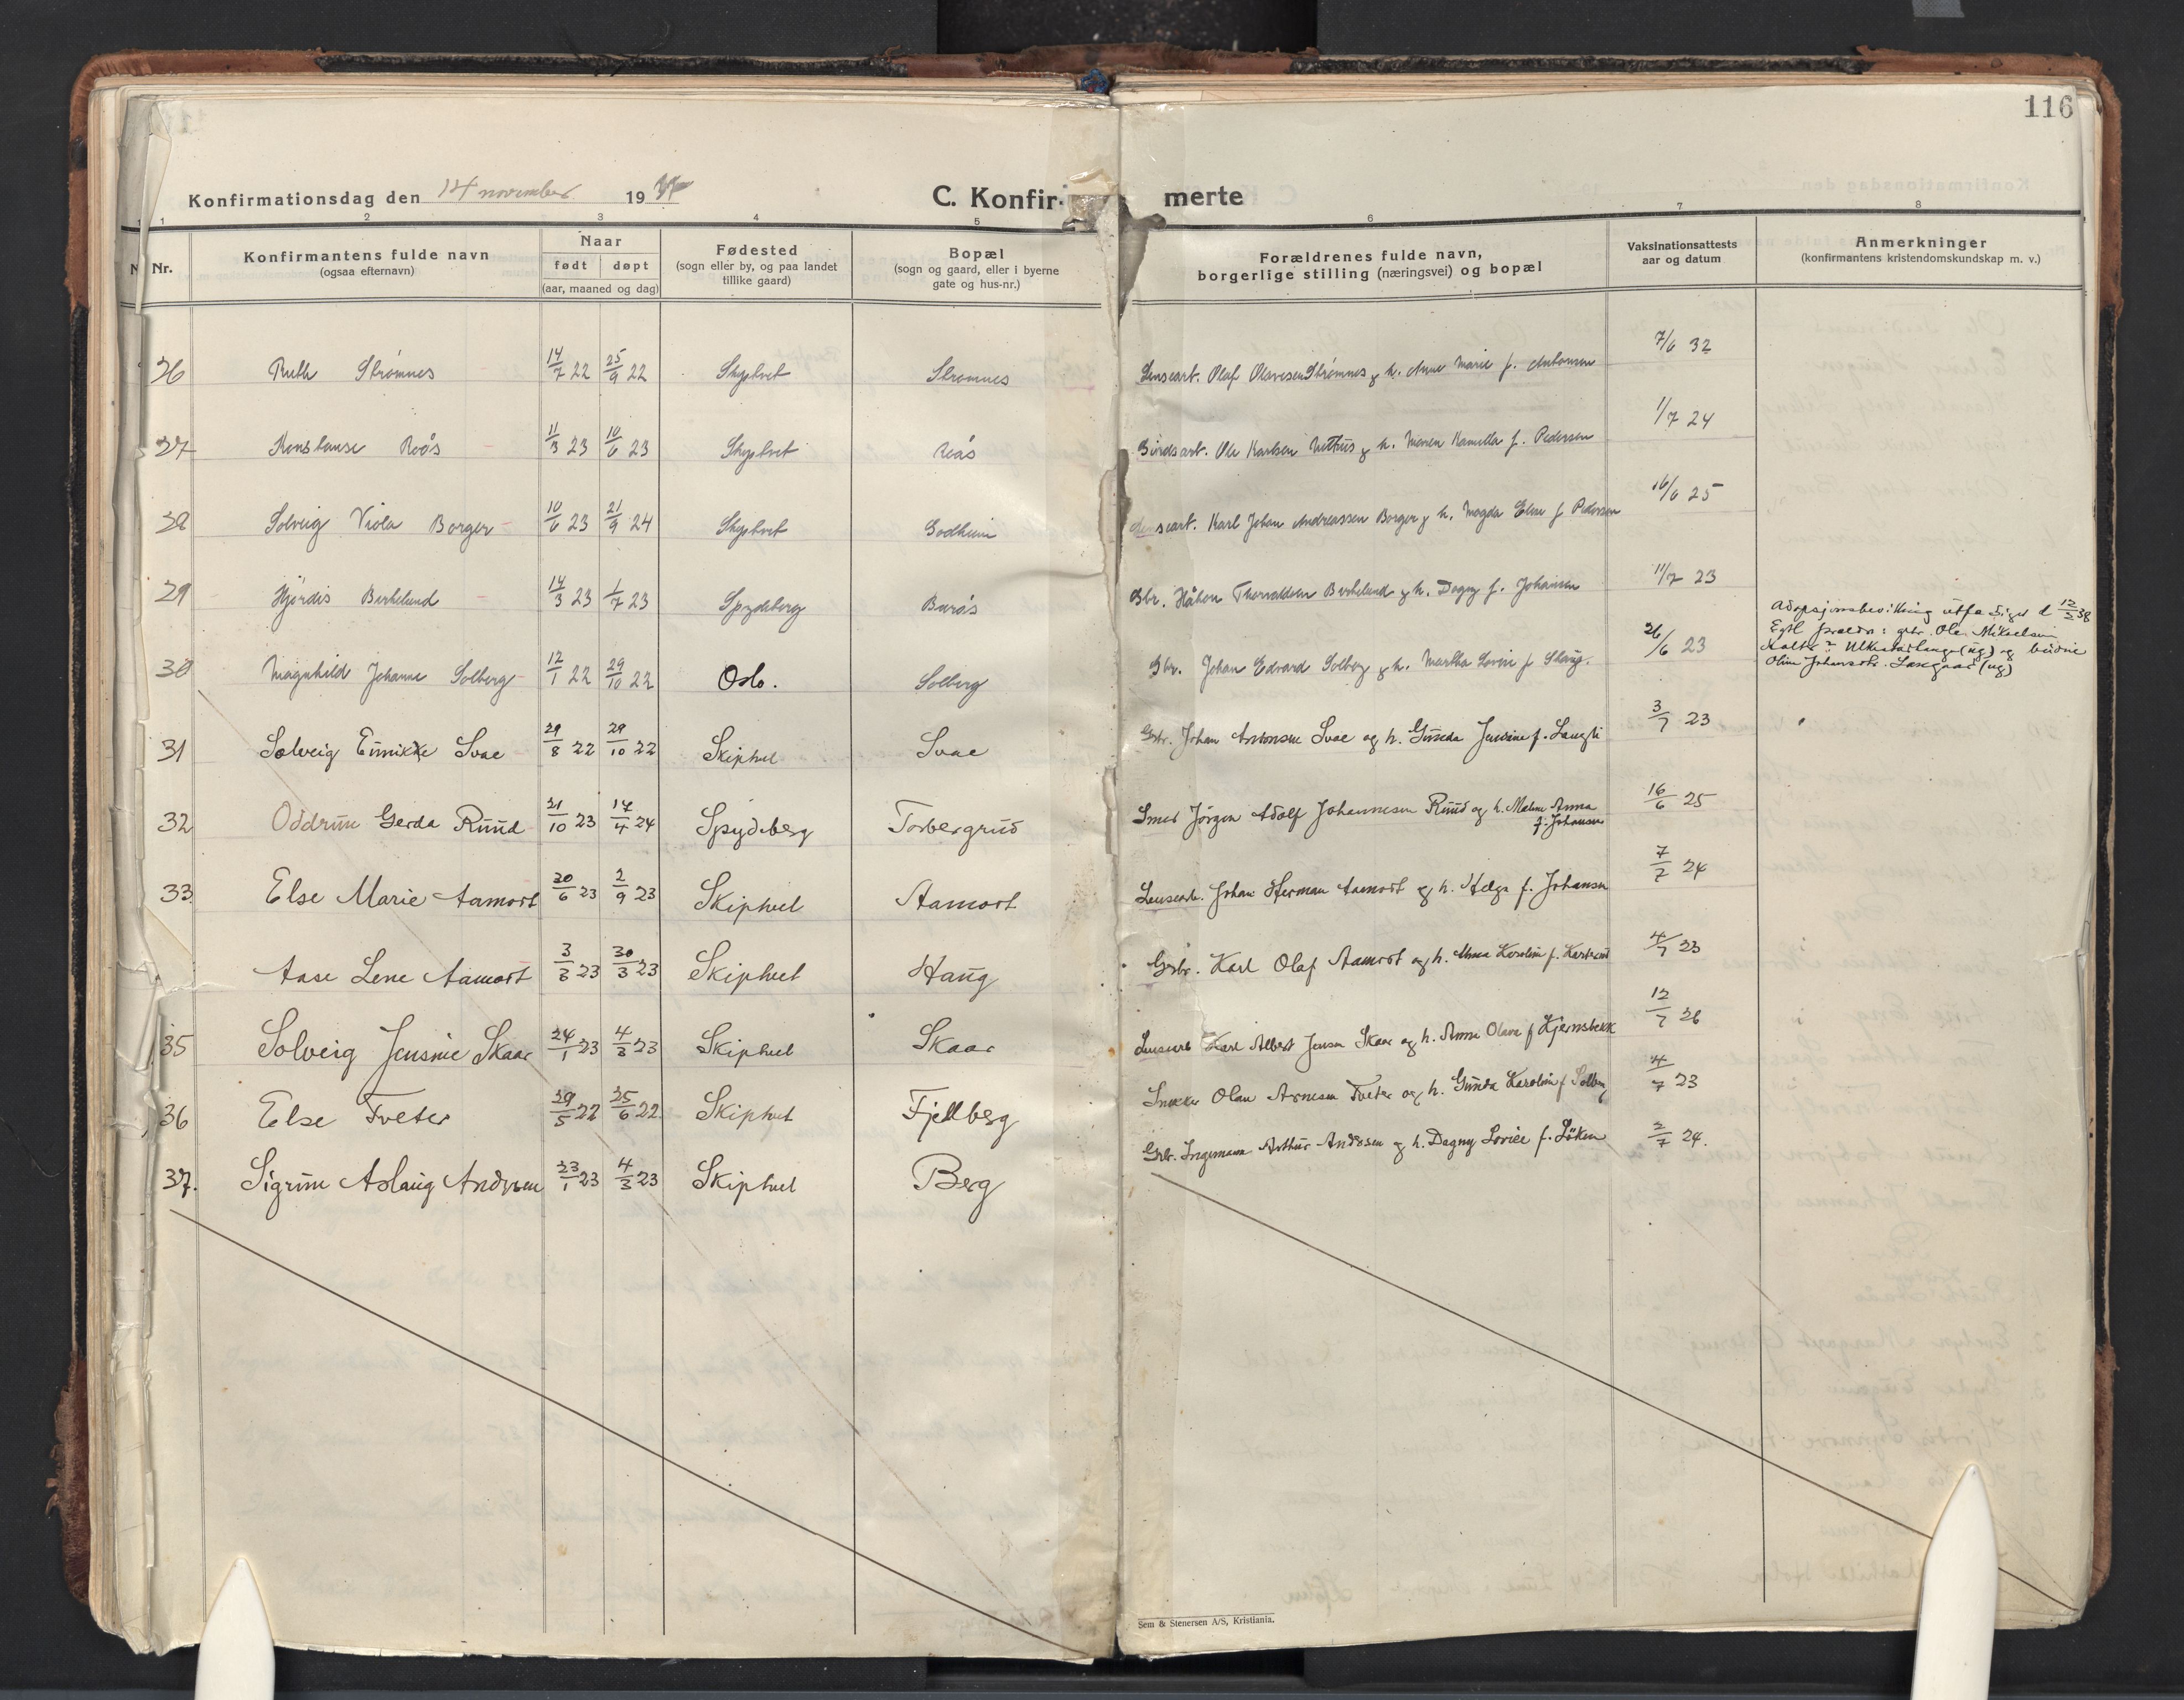 116
Konfirmationsdag den 14 november 19 37 C. Konfir- merte
1 2 3 4 5 6 7 8
Nr. Konfirmantens fulde navn (ogsaa efternavn) Naar født døpt (aar, maaned og dag) Fødested (sogn eller by, og paa landet tillike gaard) Bopæl (sogn og gaard, eller i byerne gate og hus-nr.) Forældrenes fulde navn, borgerlige stilling (næringsvei) og bopæl Vaksinationsattests aar og datum Anmerkninger (konfirmantens kristendomskundskap m. v.)
26 Ruth Strømnes 14/7 22 25/9 22 Skiptvet Strømnes Lensearb. Olaf Olavesen Strømnes g h. Anne Marie f. Antonsen 7/6 32
27 Konstanse Roås 11/3 23 10/6 23 Skiptvet Roås Ole Karlsen g h. Maren Kamilla f. Pedersen 1/7 24
28 Solveig Viola Borger 10/6 23 21/9 24 Skiptvet Godheim Lensearb. Karl Johan Andreassen Borger g h. Magda Elise f. Pedersen 16/6 25
29 Hjördis Birkelund 14/3 23 1/7 23 Spydeberg Burås Gbr. Håkon Thorvaldsen Birkelund g h. Dagny f. Johansen 11/7 23
30 Magnhild Johanne Solberg 12/1 22 29/10 22 Oslo. Solberg Gbr. Johan Edvard Solberg g h. Martha Lovise f. 26/6 23
Adopsjonsbevilling utferdiget d 12/2 38
Egtl foreldr: gbr. Ole Mikaelsen
(ug) og
Oline (ug)
31 Solveig Svae 29/8 22 29/10 22 Skiphvet Svae Grbr. Johan Antonsen Svae og h. Gunda Jensine f. Langli 3/7 23
32 Oddrun Gerda Ruud 21/10 23 14/4 24 Spydeberg Torbergrud Smed Jörgen Adolf Johannesen Ruud og h. Anna
f. Johansen 16/6 25
33 Else Marie Aamodt 20/6 23 2/9 23 Skiphvet Aamodt Lensearb. Johan Herman Aamodt og h. Helga f. Johansen 7/7 24
Aase Lene Aamodt 3/3 23 30/3 23 Skiphvet Haug Grbr. Karl Olaf Aamodt og h. Karoline f. 4/7 23
35 Solveig Jensine Skaar 24/1 23 4/3 23 Skiphvet Skaar Lensearb Karl Albert Jensen Skaar og h. Anna Olava f Kjernsbekk 12/7 26
36 Else Tveter 29/5 22 25/6 22 Skiphvet Fjellberg Snekker Olav Arnesen Tveter og h. Gunda Karoline f Solberg 4/7 23
37. Sigrun Aslaug Andersen 23/1 23 4/3 23 Skiphvet Berg Grbr. Ingemann Arthur Andersen og h. Dagny Lovise f. Löken 2/7 24.
Sem & Stenersen A/S, Kristiania.